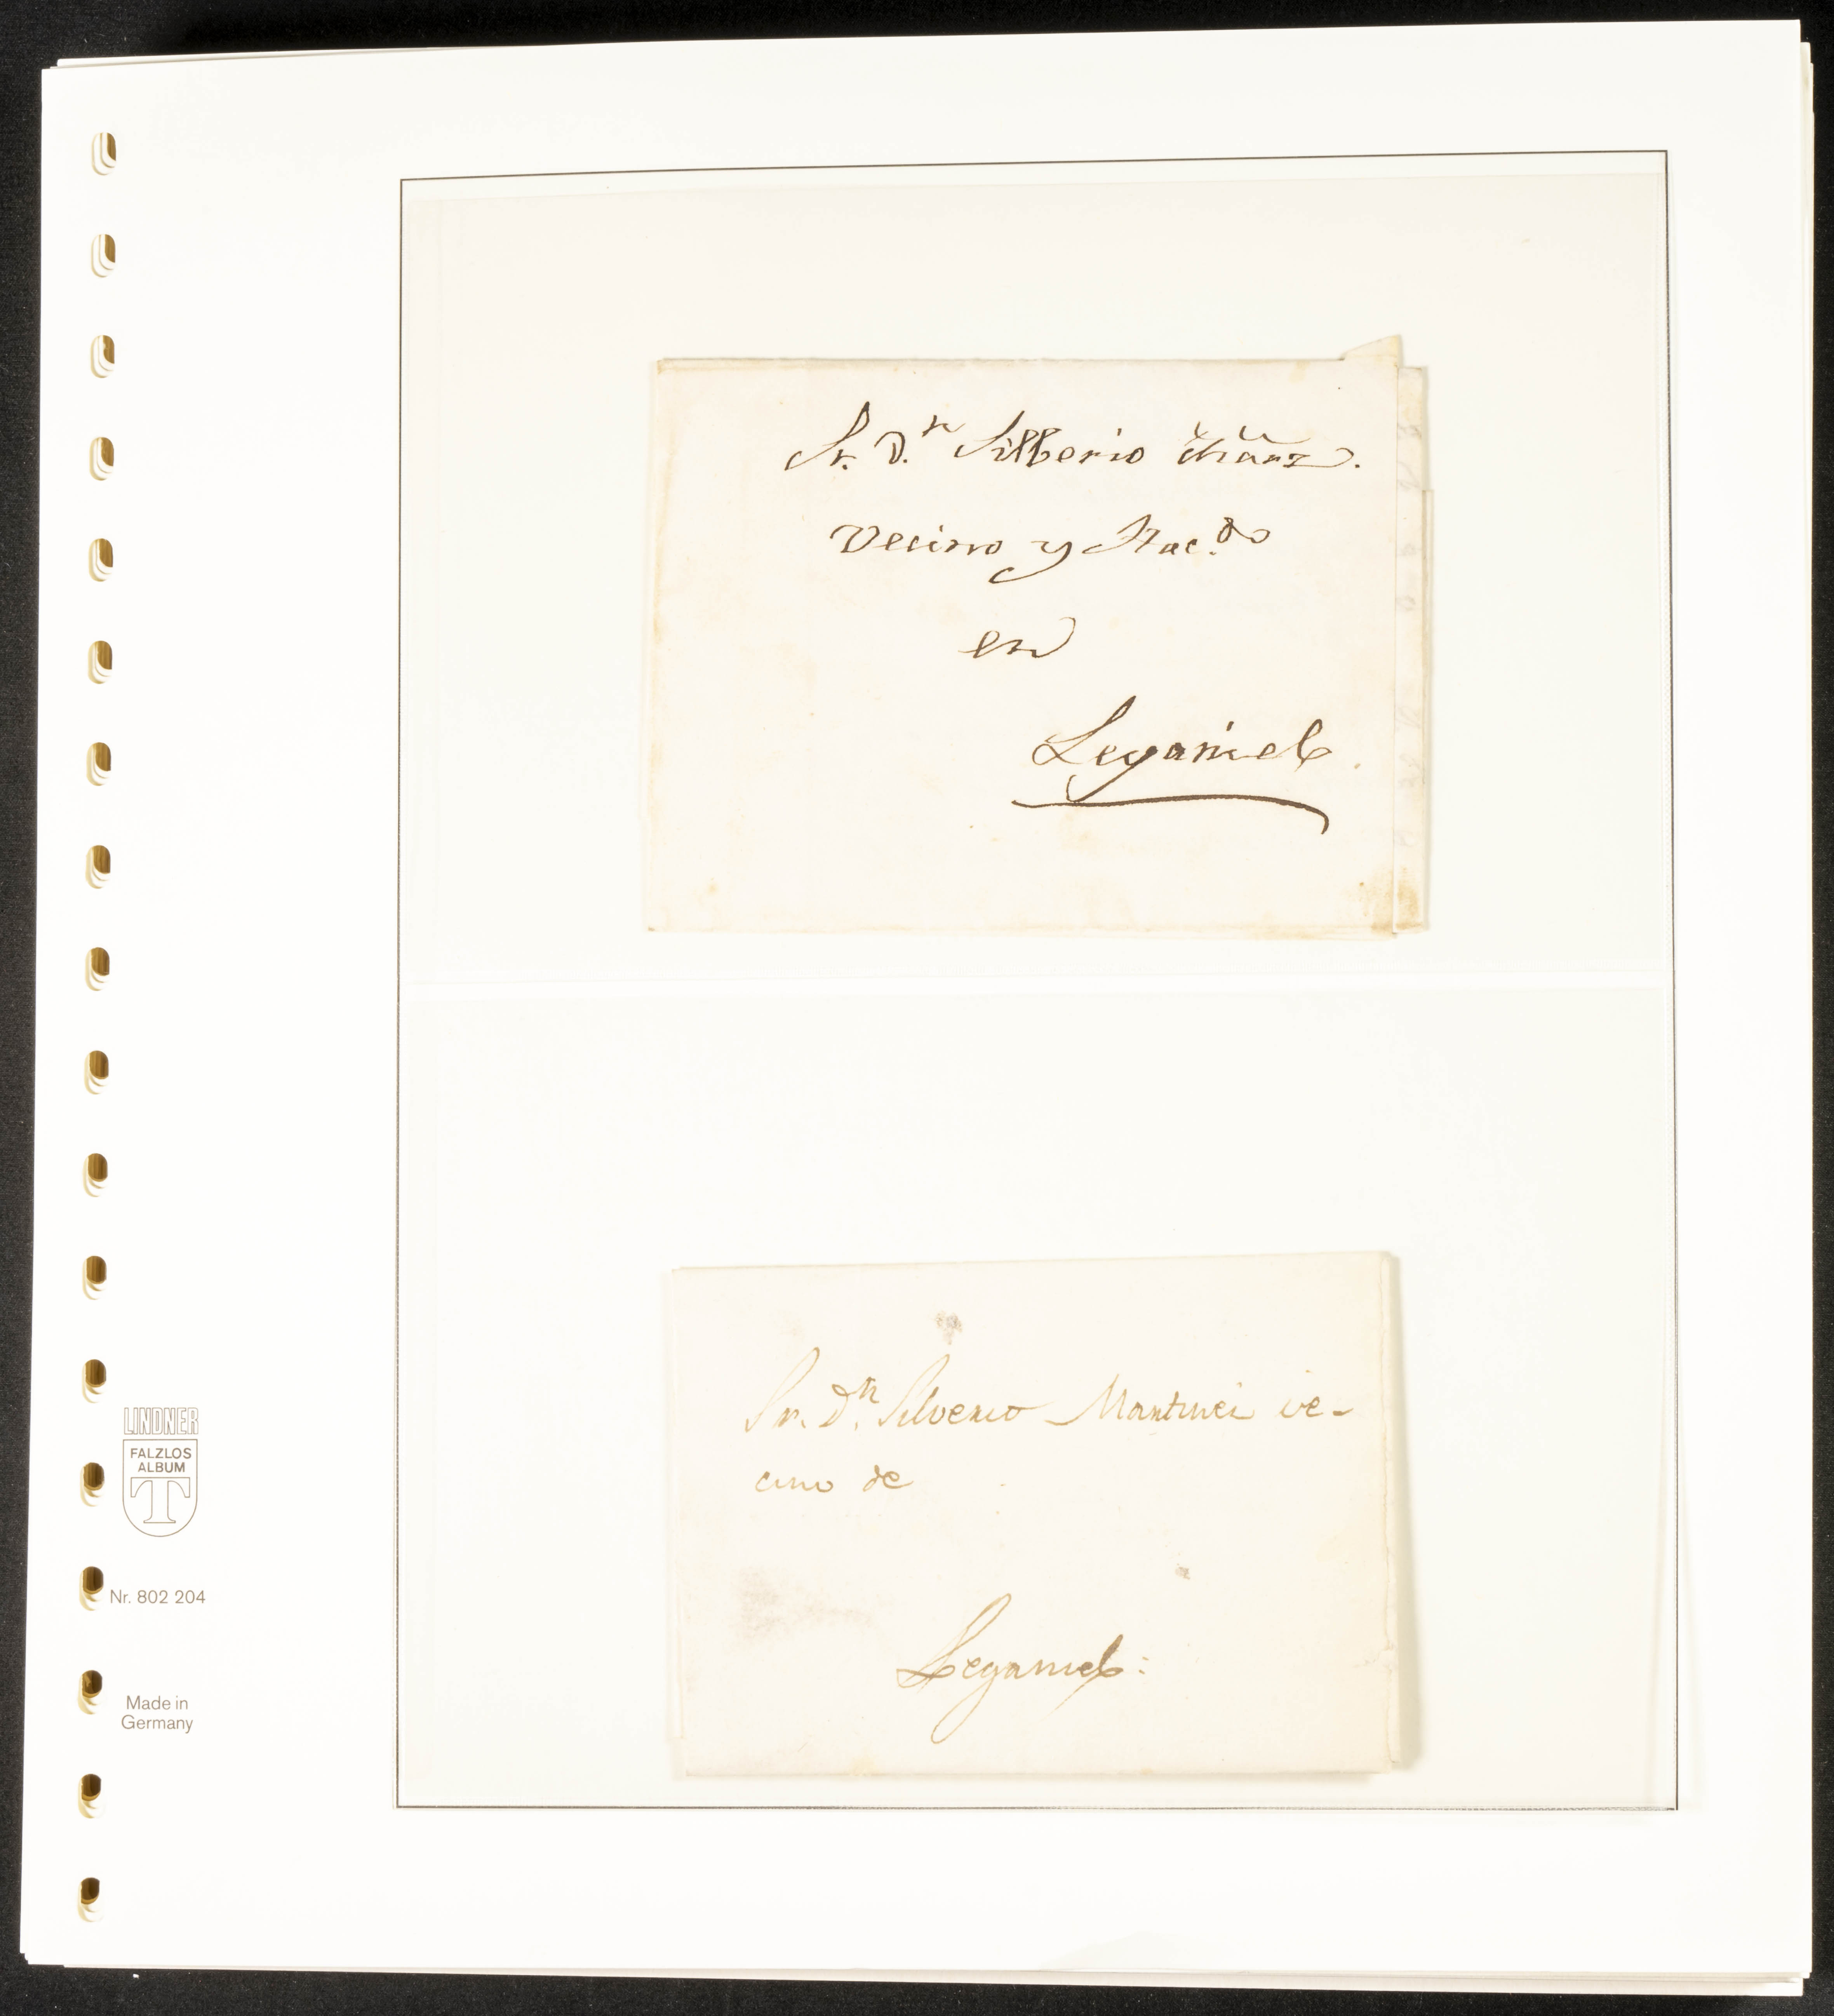 Sr. D.n Silberio
Vecino y Hac.do
en
Leganiel.
Sr. D.n Silverio Martinez ve-
cino de
Leganiel:
LINDNER
FALZLOS
ALBUM
T
Nr. 802 204
Made in
Germany